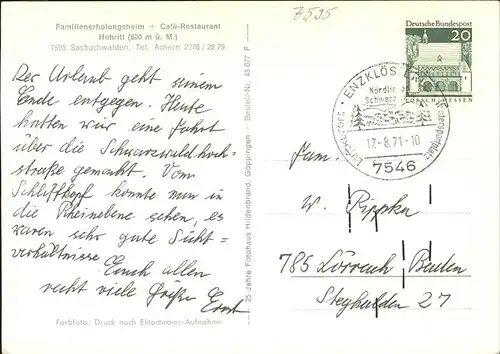 7595
Familienerholungsheim + Café-Restaurant
Hohritt (800 m ü. M.)
7595 Sasbachwalden, Tel. Achern 2278 / 22 79
Der Urlaub geht seinem
Ende entgegen. Heute
hatten wir eine Fahrt
über die Schwarzwaldhoch-
straße gemacht. Vom
Schliffkopf konnte man in
die Rheinebene sehen, es
waren sehr gute Sicht-
verhältnisse Euch allen
recht viele Grüße Ernst
Farbfoto: Druck nach Ektachrome-Aufnahme
25 Jahre Fotohaus Hildenbrand, Göppingen · Bestell-Nr. 45 077 F
Deutsche Bundespost
20
LORSCH/HESSEN
ENZKLÖS
Nördlic
Schwarz
Luftkurort
tersportplatz
17.-8.71.-10
7546
Fam.
W. Rippka
785 Lörrach Baden
Steghalden 27